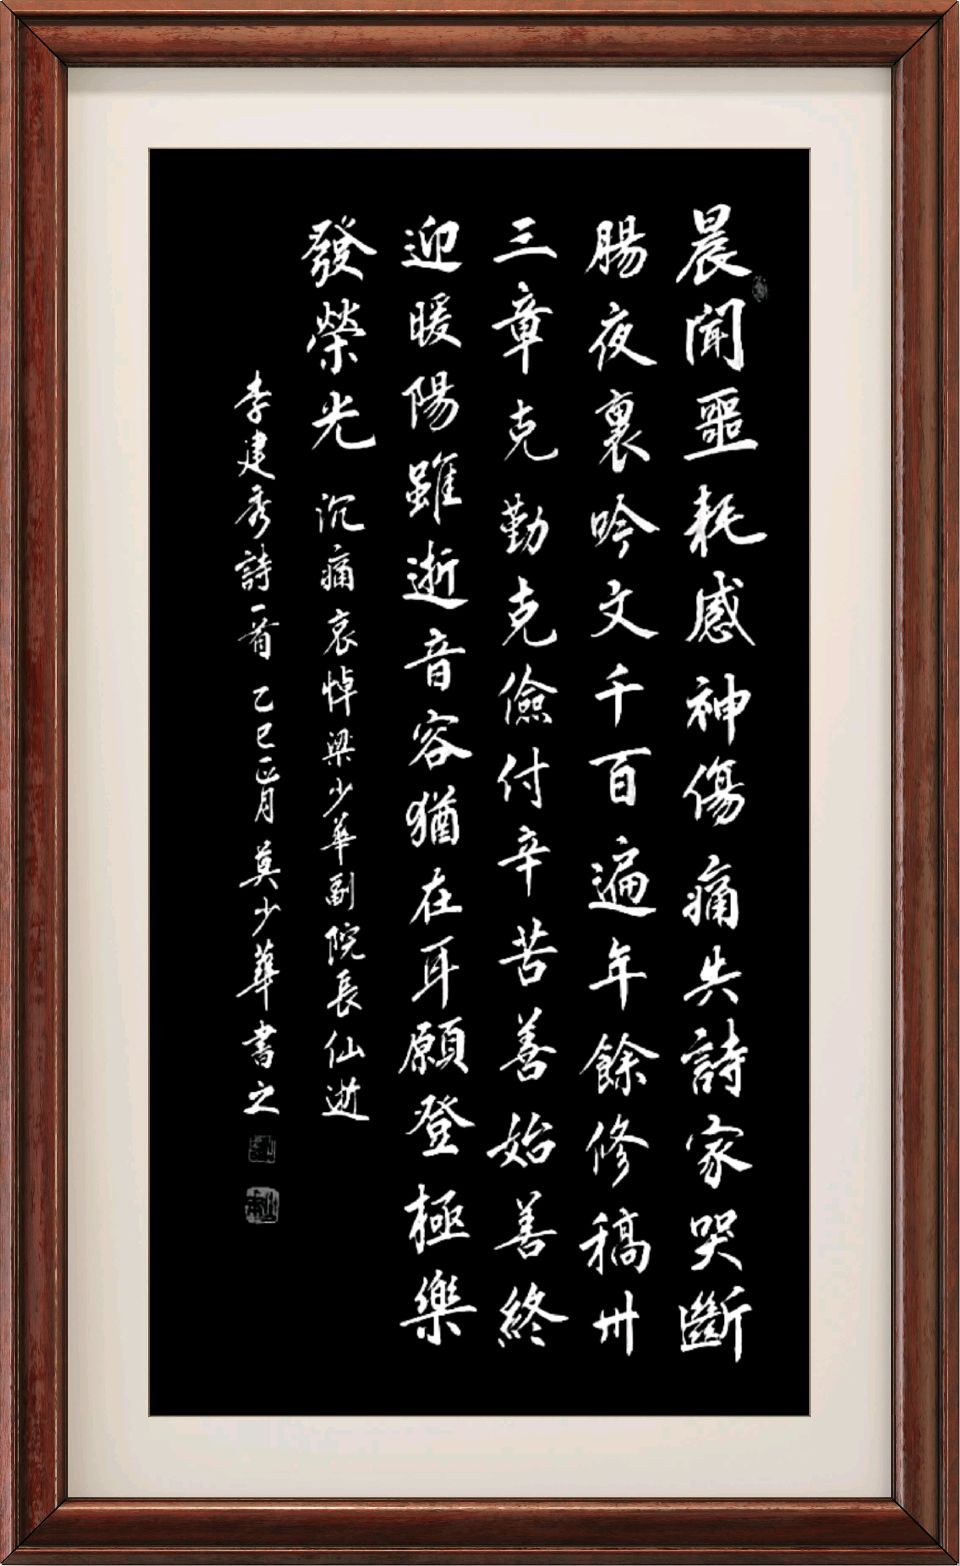 晨聞噩耗感神傷痛失詩家哭斷
腸夜裏吟文千百遍年餘修稿卅
三章克勤克儉付辛苦善始善終
迎暖陽雖逝音容猶在耳願登極樂
發榮光 沉痛哀悼梁少華副院長仙逝
李建秀詩一首 乙巳正月 莫少華書之